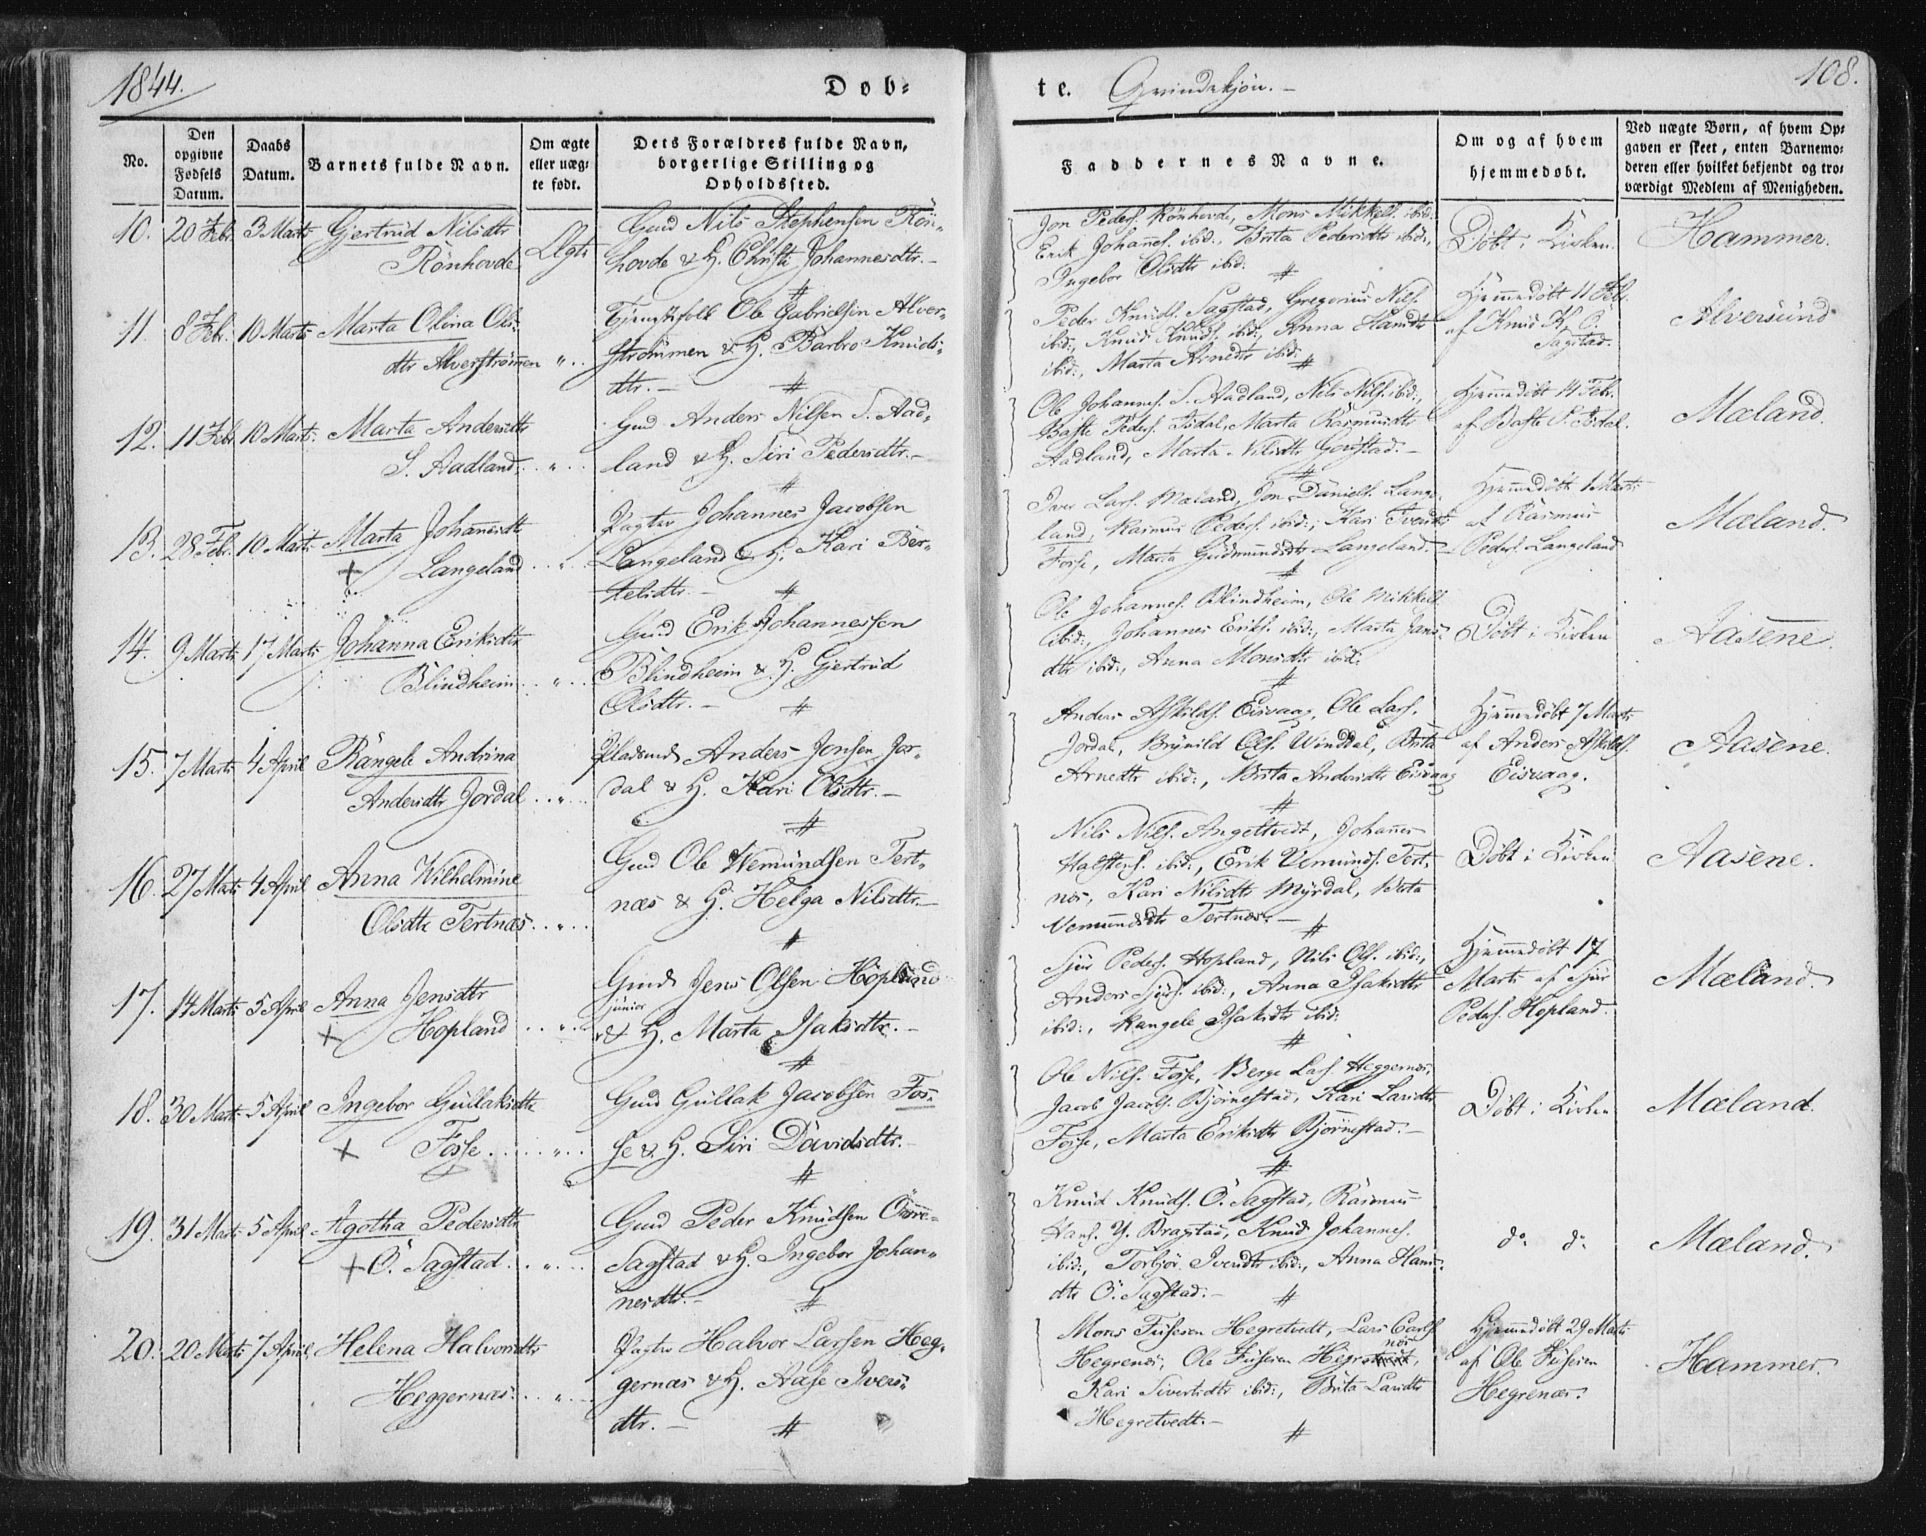 1844.
Døb-
te. Qvindekjön.
108.
No.
Den opgivne Fødsels Datum.
Daabs Datum.
Barnets fulde Navn.
Om ægte eller uægte født.
Dets Forældres fulde Navn, borgerlige Stilling og Opholdssted.
Faddernes Navne.
Om og af hvem hjemmedøbt.
Ved uægte Børn, af hvem Opgaven er skeet, enten Barnemoderen eller hvilket bekjendt og troværdigt Medlem af Menigheden.
10. 20 Febr. 3 Marts Gertrud Nilsdtr
Rönhovde
Gmd Nils Stephensen Rön-
hovde & H. Christi Johannesdtr.
Jon Peders. Rönhovde, Mons Mikkels. ibid:
Erik Johans. ibid:, Brita Pedersdtr ibid:,
Ingebor Olsdtr ibid:
Döbt i Kirken.
Hammer.
11. 8 Febr. 10 Marts Marta Olina Ols-
dtr Alverströmmen
Tjenstfolk Ole Gabrielsen Alver-
strömmen & H. Barbro Knuds-
dtr.
Peder Knuds. Sagstad, Gregorius Nils.
ibid:, Knud Knuds. ibid:, Anna Hansdtr
ibid:, Marta Arnedtr ibid:
Hjemmedöbt 11 Febr.
af Knud K. Ö.
Sagstad.
Alversund
12. 11 Febr. 10 Marts Marta Andersdtr
S. Aadland
Gmd Anders Nilsen S. Aad-
land & H. Siri Pedersdtr.
Ole Johannes. S. Aadland, Nils Nils. ibid:,
Baste Peders. Isdal, Marta Rasmusdtr
Aadland, Marta Nilsdtr
Hjemmedöbt 14 Febr.
af Baste P. Isdal.
Mæland.
13. 28 Febr. 10 Marts Marta Johannesdtr
Langeland
Pagter Johannes Jacobsen
Langeland & H. Kari Ber-
telsdtr.
Iver Lars. Mæland, Jon Daniels. Lange-
land, Rasmus Peders. ibid:, Kari
Fosse, Marta Gudmundsdtr Langeland.
Hjemmedöbt 1 Marts
af Rasmus
Peders. Langeland
Mæland.
14. 9 Marts 17 Marts Johanna Eriksdtr
Blindheim
Gmd Erik Johannessen
Blindheim & H. Gjertrud
Olsdtr.
Ole Johannes. Blindheim, Ole Mikkels.
ibid:, Johannes Eriks. ibid:, Marta Jans-
dtr ibid:, Anna Monsdtr ibid:
Döbt i Kirken
Aasene.
15. 7 Marts 4 April Rangele Andrina
Andersdtr Jordal
Pladsmd Anders Jonsen Jor-
dal & H. Kari Olsdtr.
Anders Askilds. Eisvaag, Ole Lars.
Jordal, Brynild Ols. Winddal, Brita
Arnedtr ibid:, Brita Andersdtr Eisvaag
Hjemmedöbt 7 Marts
af Anders Askilds.
Eisvaag.
Aasene.
16. 27 Marts 4 April Anna Wilhelmine
Olsdtr Tertnæs
Gmd Ole Wemundsen Tert-
næs & H. Helga Nilsdtr.
Nils Nils. Angeltvedt, Johannes
Halstens. ibid:, Erik Vemunds. Tert-
næs, Kari Nilsdtr Myrdal, Brita
Vemundsdtr Tertnæs.
Döbt i Kirken
Aasene.
17. 14 Marts 5 April Anna Jensdtr
Hopland
Gmd Jens Olsen Hopland
junior
& H. Marta Isaksdtr.
Sjur Peders. Hopland, Nils Ols. ibid:,
Anders Sjurs. ibid:, Anna Isaksdtr
ibid:, Rangele Isaksdtr ibid:
Hjemmedöbt 17
Marts af Sjur
Peders. Hopland.
Mæland.
18. 30 Marts 5 April Ingebor Gullaksdtr
Fosse
Gmd Gullak Jacobsen Fos-
se & H. Siri Davidsdtr.
Ole Nils. Fosse, Berge Lars. Heggernæs,
Jacob Jacobs. Björnestad, Kari Larsdtr
Fosse, Marta Eriksdtr Björnestad.
Döbt i Kirken
Mæland.
19. 31 Marts 5 April Agotha Pedersdtr
Ö. Sagstad
Gmd Peder Knudsen
Sagstad & H. Ingebor Johan-
nesdtr.
Knud Knuds. Ö. Sagstad, Rasmus
Hans. Y. Bragstad, Knud Johannes.
ibid:, Torbjör ibid:, Anna Hans-
dtr Ö. Sagstad.
do do
Mæland.
20. 20 Marts 7 April Helena Halvorsdtr
Heggernæs
Pagter Halvor Larsen Heg-
gernæs & H. Aase Ivers-
dtr.
Mons Hegretvedt, Lars Carls.
Hegrenæs, Ole
Kari Sivertsdtr ibid:, Brita Larsdtr
Hegretvedt.
Hjemmedöbt 29 Marts
af Ole
Hegrenæs.
Hammer.